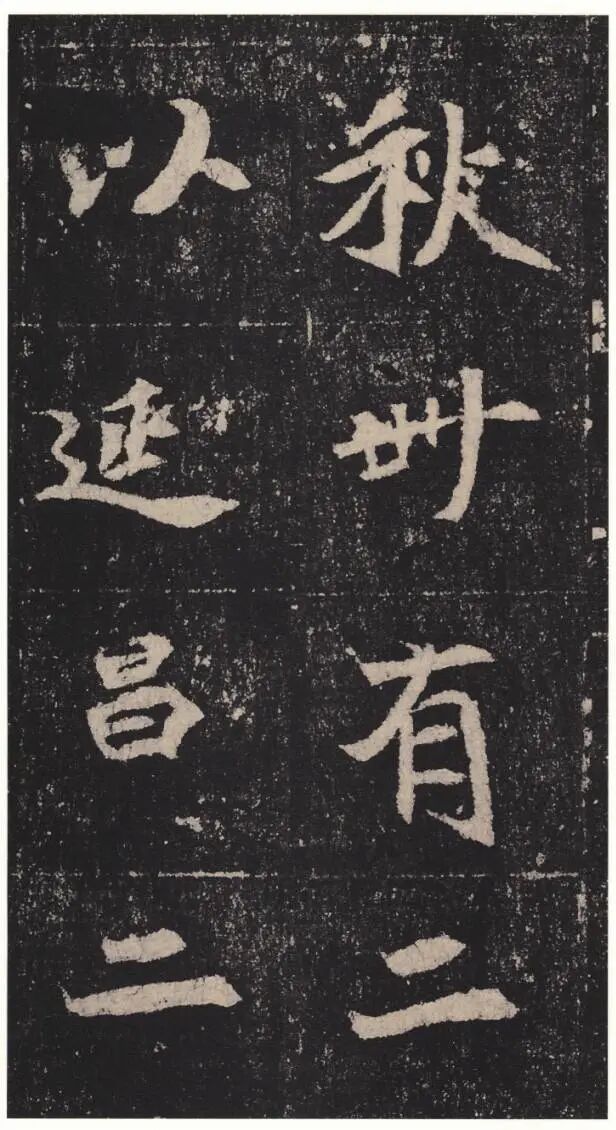 秋卅有二
以延昌二